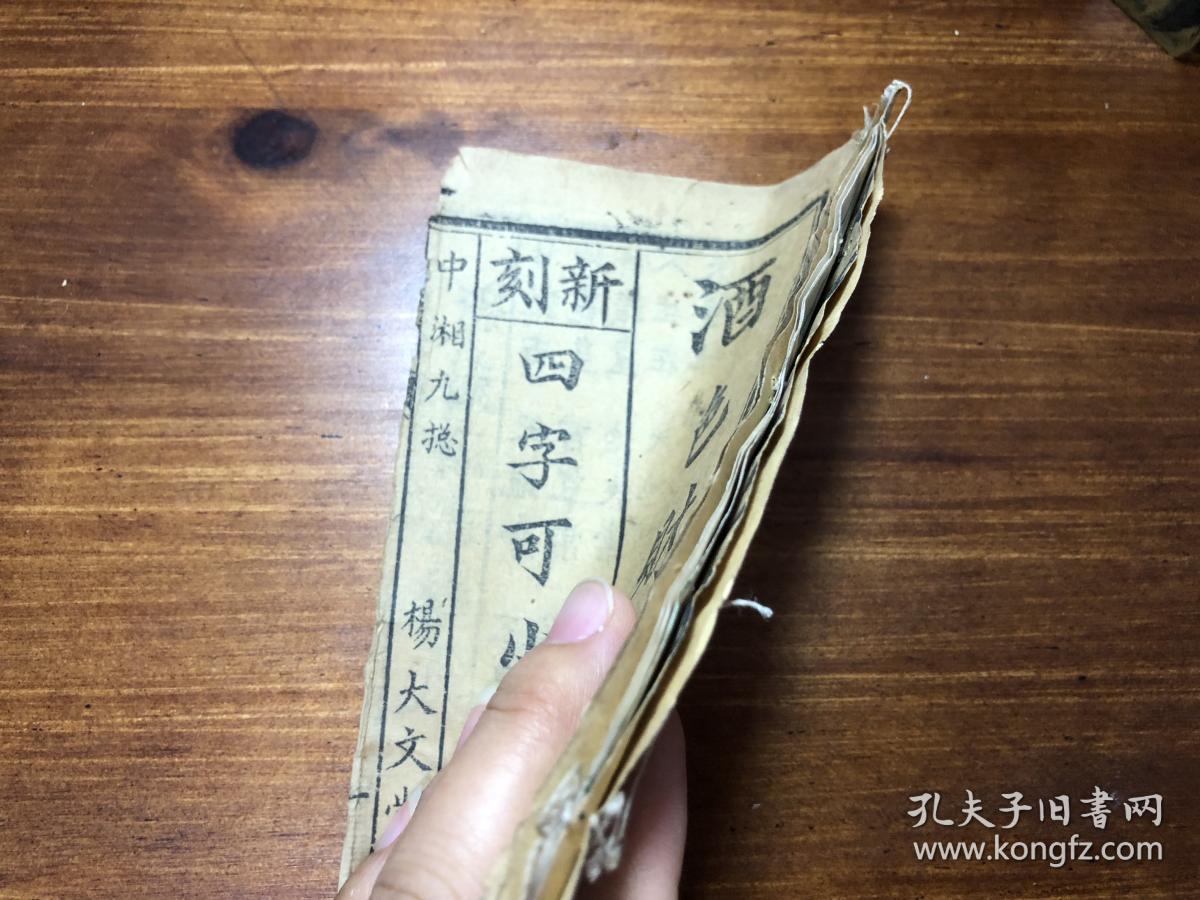 酒色財
新刻
四字可
中湘九揔
楊大文
孔夫子旧書网
www.kongfz.com